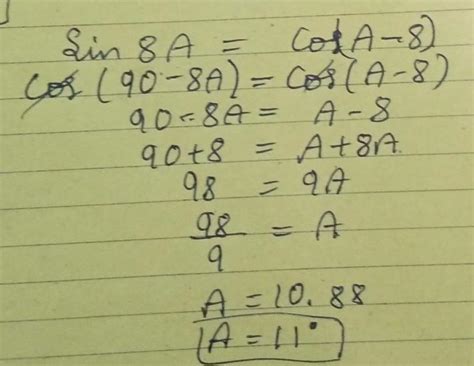 Sin 8A = Cos(A-8)
Cos (90-8A) = Cos (A-8)
90-8A = A-8
90+8 = A+8A
98 = 9A
98/9 = A
A = 10.88
A = 11°